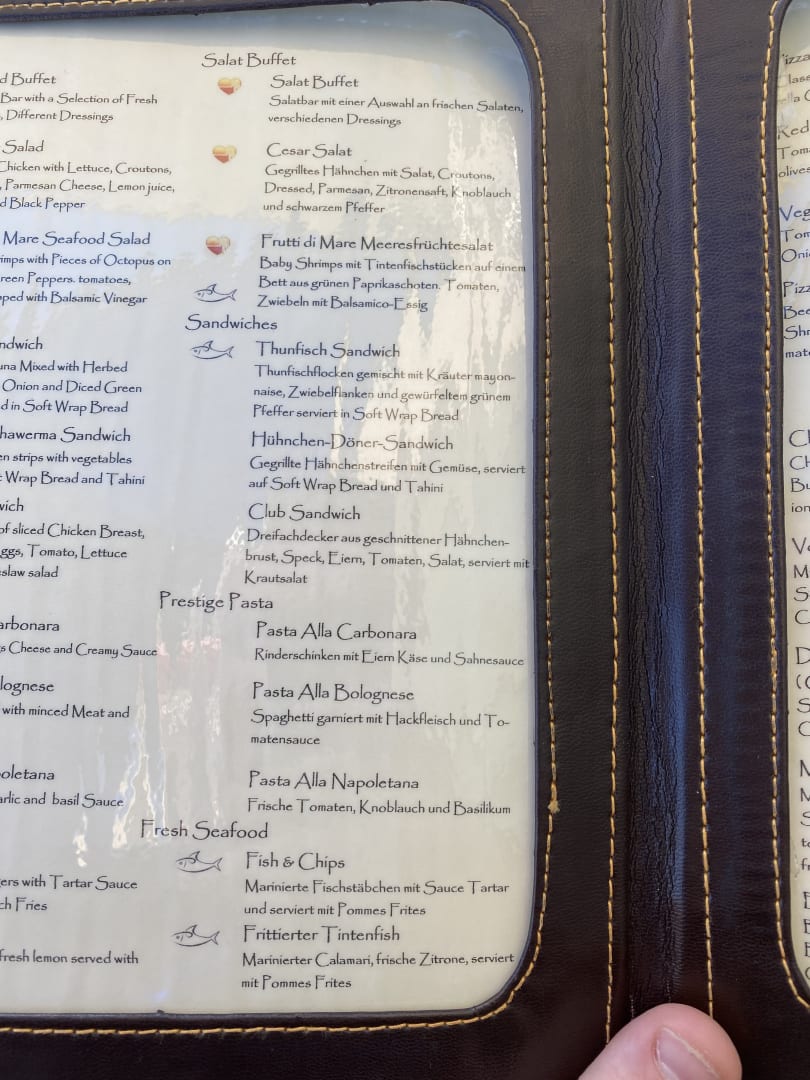 Salat Buffet
d Buffet
Bar with a Selection of Fresh
, Different Dressings
Salad
Chicken with Lettuce, Croutons,
, Parmesan Cheese, Lemon juice,
d Black Pepper
Mare Seafood Salad
imps with Pieces of Octopus on
reen Peppers. tomatoes,
pped with Balsamic Vinegar
ndwich
una Mixed with Herbed
Onion and Diced Green
d in Soft Wrap Bread
hawerma Sandwich
en strips with vegetables
t Wrap Bread and Tahini
wich
of sliced Chicken Breast,
ggs, Tomato, Lettuce
slaw salad
arbonara
s Cheese and Creamy Sauce
lognese
with minced Meat and
poletana
arlic and basil Sauce
ers with Tartar Sauce
ch Fries
fresh lemon served with
Salat Buffet
Salatbar mit einer Auswahl an frischen Salaten,
verschiedenen Dressings
Cesar Salat
Gegrilltes Hähnchen mit Salat, Croutons,
Dressed, Parmesan, Zitronensaft, Knoblauch
und schwarzem Pfeffer
Frutti di Mare Meeresfrüchtesalat
Baby Shrimps mit Tintenfischstücken auf einem
Bett aus grünen Paprikaschoten. Tomaten,
Zwiebeln mit Balsamico-Essig
Sandwiches
Thunfisch Sandwich
Thunfischflocken gemischt mit Kräuter mayon-
naise, Zwiebelflanken und gewürfeltem grünem
Pfeffer serviert in Soft Wrap Bread
Hühnchen-Döner-Sandwich
Gegrillte Hähnchenstreifen mit Gemüse, serviert
auf Soft Wrap Bread und Tahini
Club Sandwich
Dreifachdecker aus geschnittener Hähnchen-
brust, Speck, Eiern, Tomaten, Salat, serviert mit
Krautsalat
Prestige Pasta
Pasta Alla Carbonara
Rinderschinken mit Eiern Käse und Sahnesauce
Pasta Alla Bolognese
Spaghetti garniert mit Hackfleisch und To-
matensauce
Pasta Alla Napoletana
Frische Tomaten, Knoblauch und Basilikum
Fresh Seafood
Fish & Chips
Marinierte Fischstäbchen mit Sauce Tartar
und serviert mit Pommes Frites
Frittierter Tintenfish
Marinierter Calamari, frische Zitrone, serviert
mit Pommes Frites
izza
Red
Tom
olives
Veg
Tom
Oni
Pizz
Bee
Shr
mat
Ch
Bu
ion